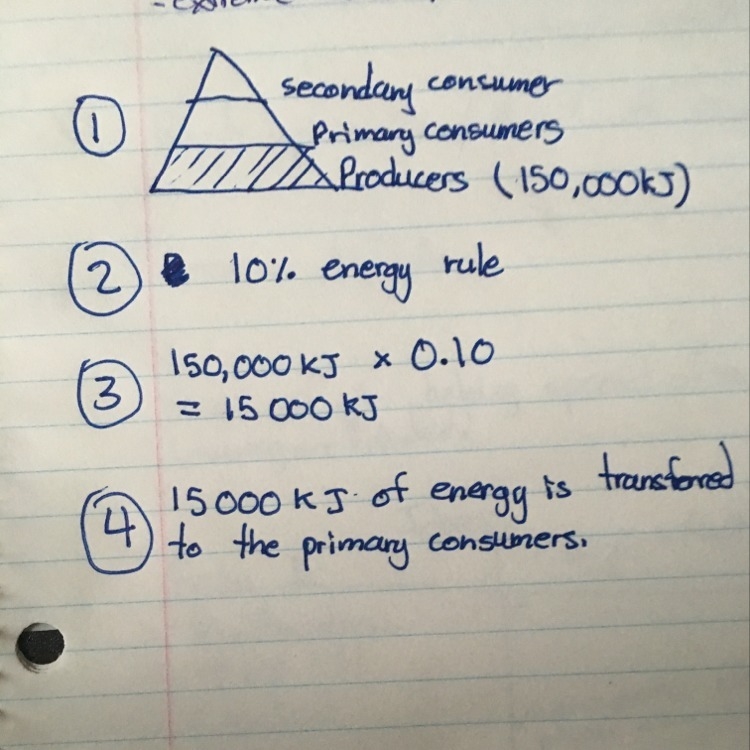 ① secondary consumer
Primary consumers
Producers (150,000kJ)
② 10% energy rule
③ 150,000 KJ x 0.10
= 15 000 KJ
④ 15000 KJ of energy is transferred
to the primary consumers.